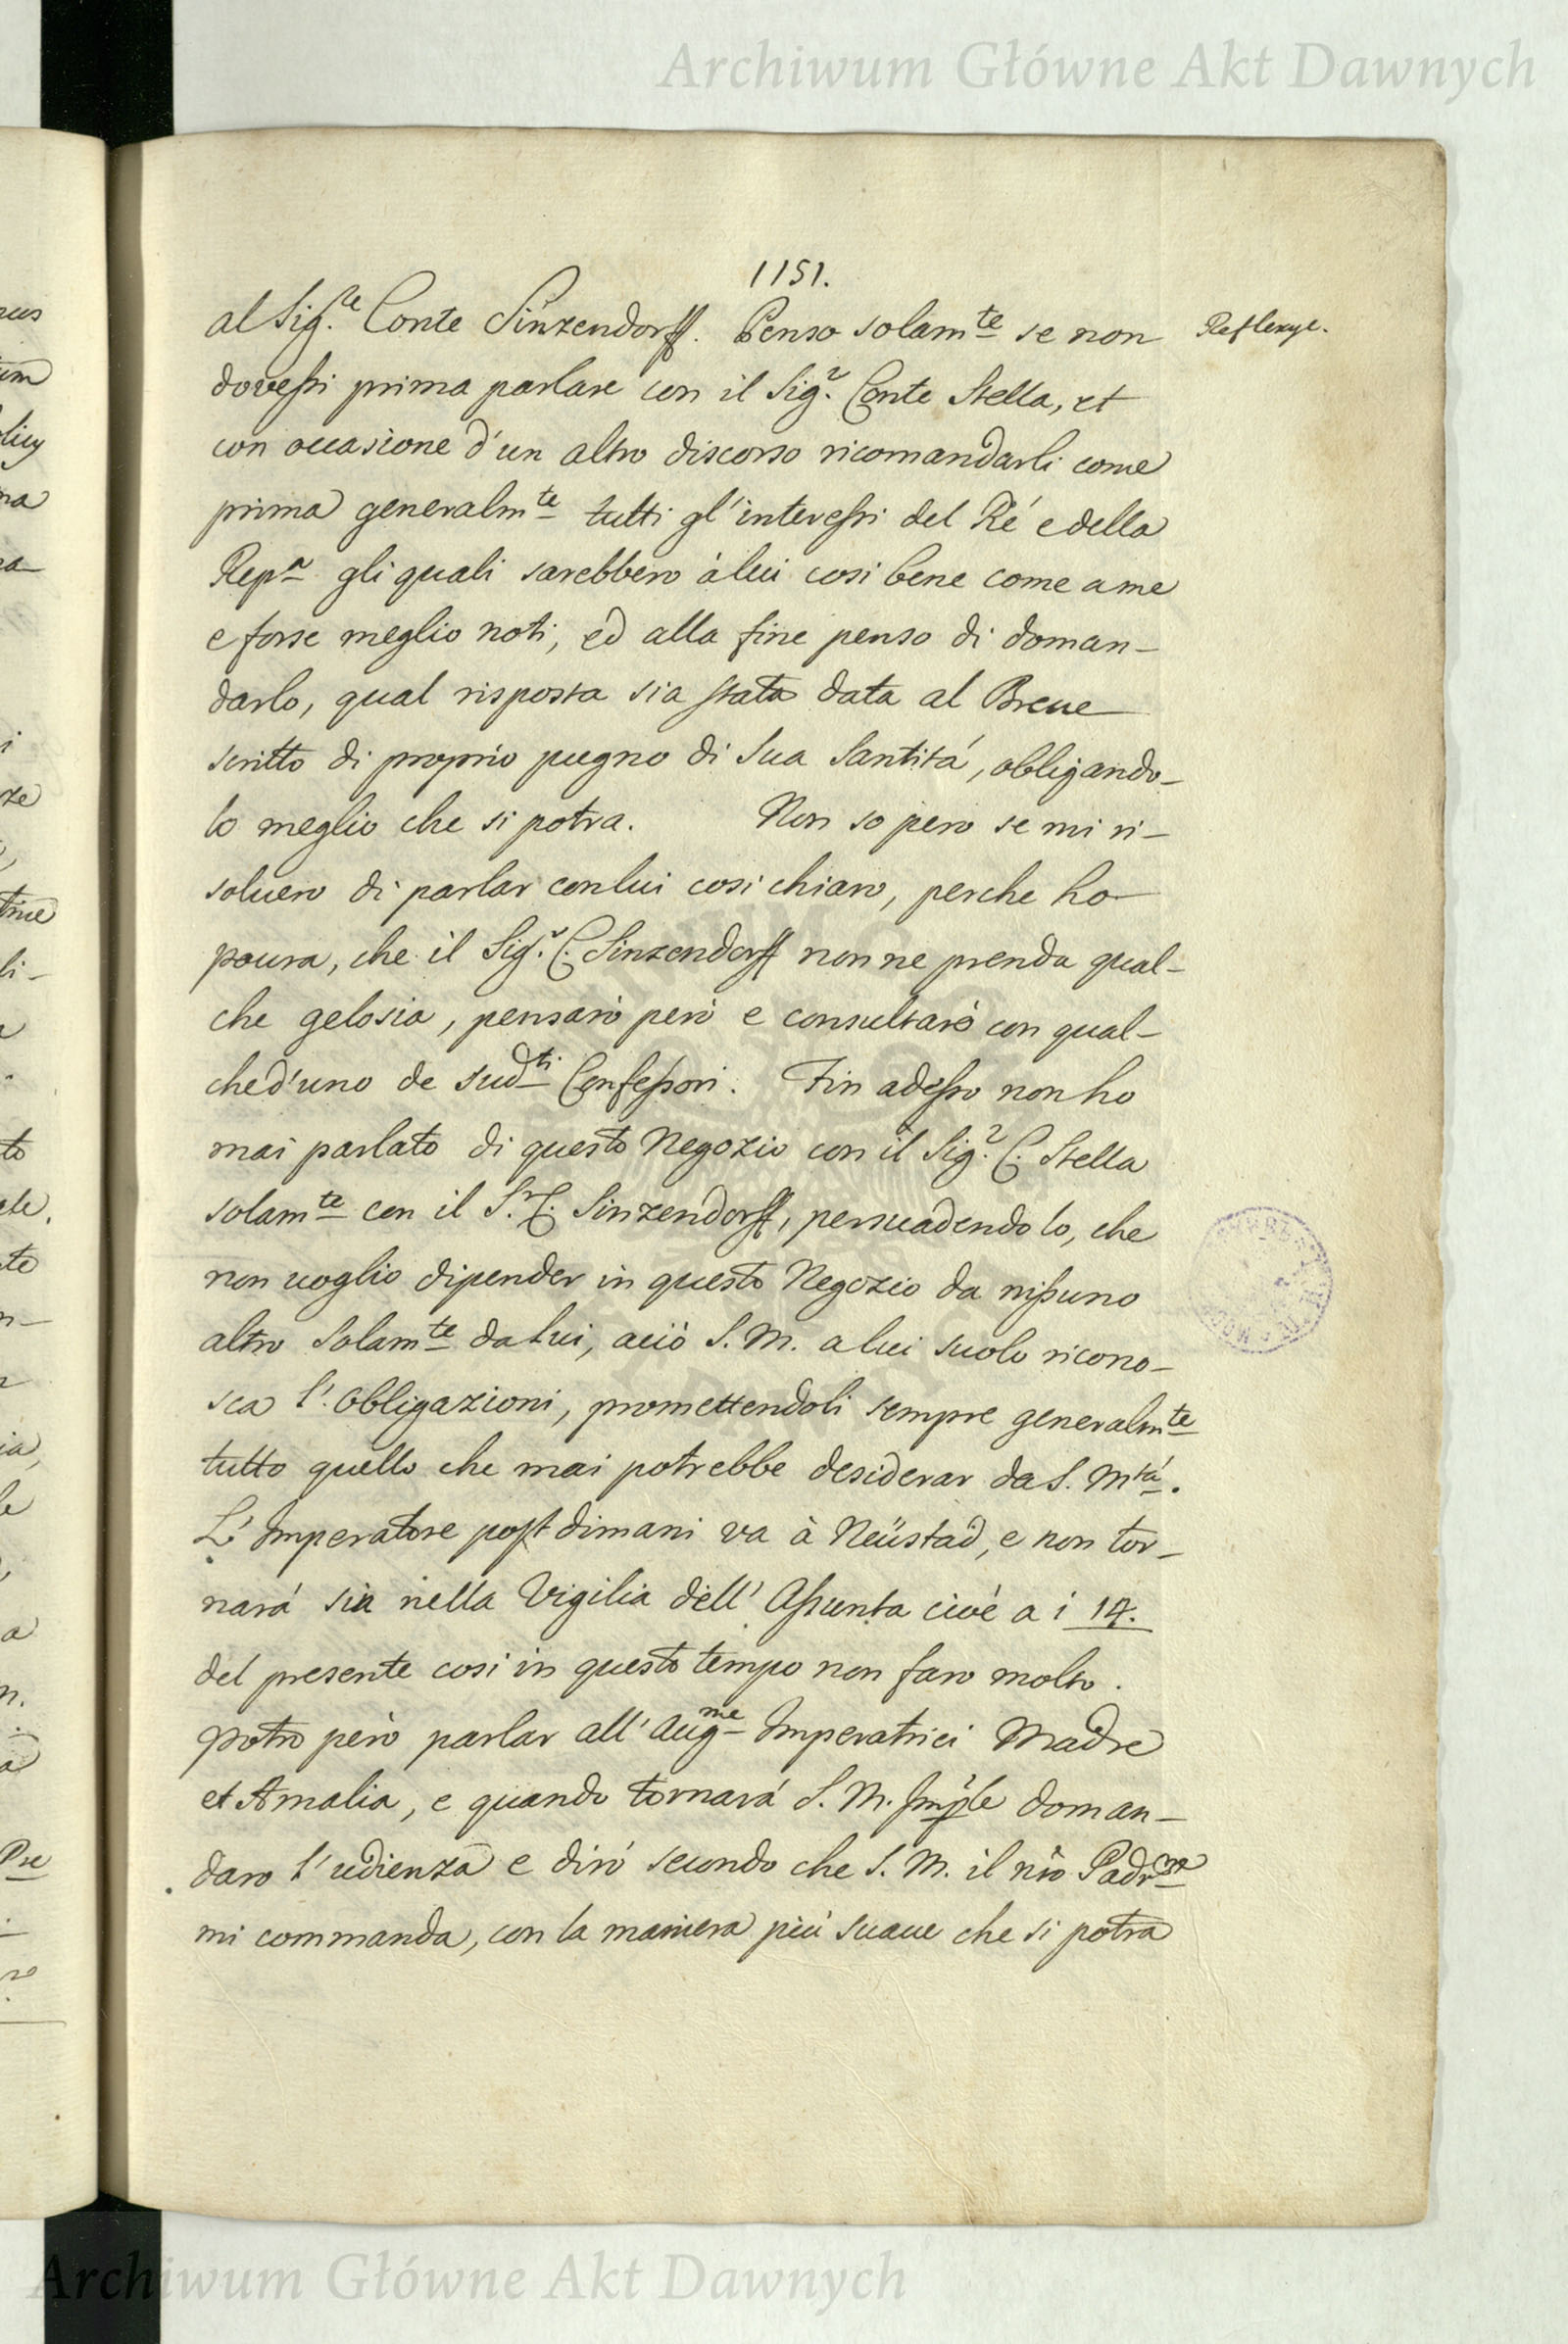 Archiwum Główne Akt Dawnych
1151.
al Sig.re Conte Sinzendorff. Penso solamte se non
Reflexye.
dovessi prima parlare con il Sigr. Conte Stella, et
con occasione d'un altro discorso ricomandarli come
prima generalmte tutti gl'interessi del Ré e della
Repa gli quali sarebbero à lui cosi bene come a me
e forse meglio noti, ed alla fine penso di doman-
darlo, qual risposta sia stata data al Breue
scritto di proprio pugno di Sua Santitá, obligando-
lo meglio che si potra. Non so pero se mi ri-
soluero di parlar con lui cosi chiaro, perche ho
paura, che il Sigr. C. Sinzendorff non ne prenda qual-
che gelosia, pensarò però e consultarò con qual-
ched'uno de sudti Confessori. Fin adesso non ho
mai parlato di questo Negozio con il Sigr. C. Stella
solamte con il Sr. C. Sinzendorff, persuadendo lo, che
non uoglio dipender in questo Negozio da nissuno
altro solamte da lui, acciò S. M. a lui suolo ricono-
sca l'obligazioni, promettendoli sempre generalmte
tutto quello che mai potrebbe desiderar da S. Mtá.
L'Imperatore post dimani va à Neüstad, e non tor-
nará sin nella Vigilia dell' Assunta cioé a i 14.
del presente cosi in questo tempo non faro molto.
potro però parlar all' Augme Imperatrici Madre
et Amalia, e quando tornará S. M. Imple doman-
daro l'udienza e diró secondo che S. M. il nro Padrne
mi commanda, con la maniera piú suaue che si potra
Archiwum Główne Akt Dawnych